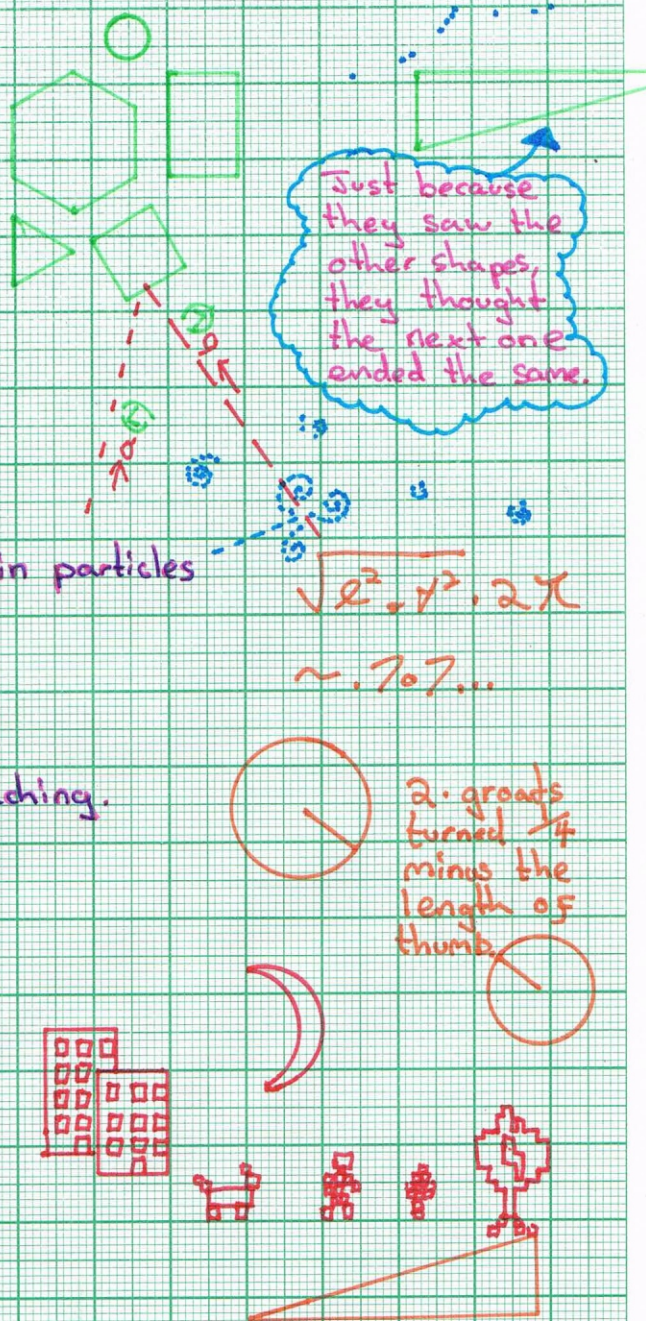 Just because
they saw the
other shapes,
they thought
the next one
ended the same.
in particles
2π
~ .707...
ching.
2. groats
turned 1/4
minus the
length of
thumb.